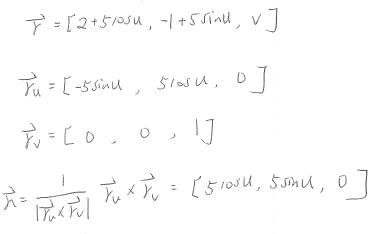 r⃗ = [2+5cosu, -1+5sinu, v]
r⃗ᵤ = [-5sinu, 5cosu, 0]
r⃗ᵥ = [0, 0, 1]
n⃗ = 1/|r⃗ᵤ×r⃗ᵥ| r⃗ᵤ×r⃗ᵥ = [5cosu, 5sinu, 0]